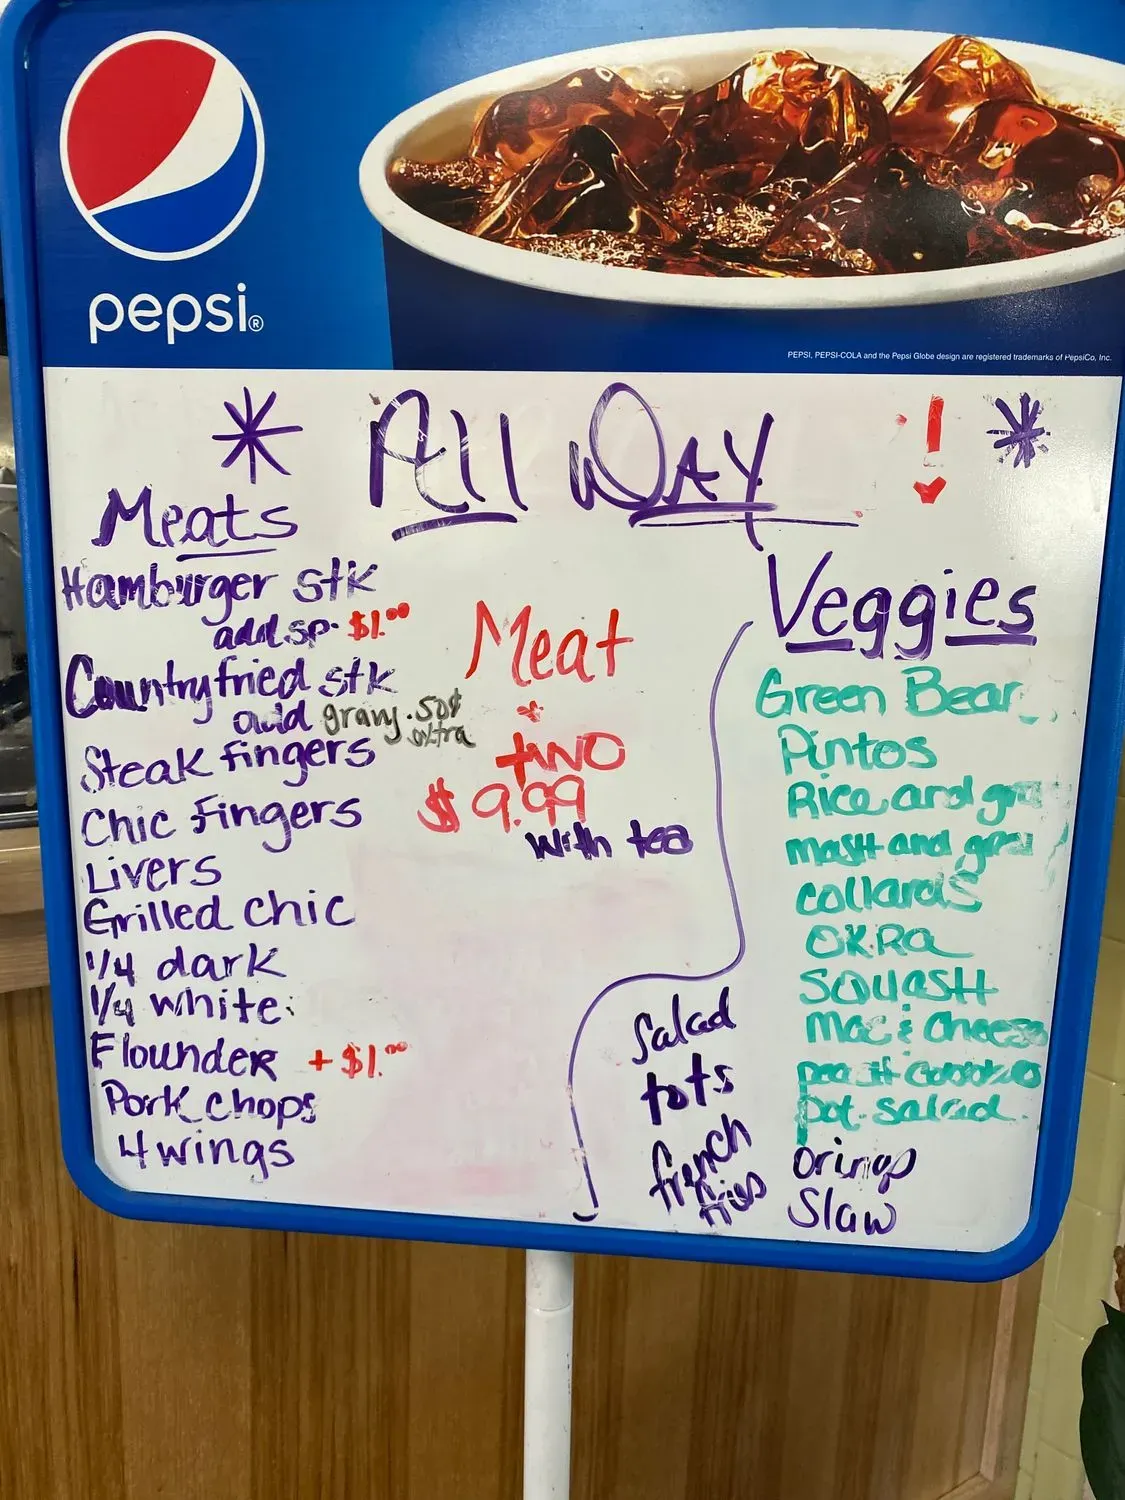 pepsi®
PEPSI, PEPSI-COLA and the Pepsi Globe design are registered trademarks of PepsiCo, Inc.
* All DAY ! *
Meats
Hamburger stk
add sp. $1.00
Country fried stk
add gravy .50¢ extra
Steak fingers
Chic Fingers
Livers
Grilled chic
1/4 dark
1/4 white
Flounder + $1.00
Pork chops
4 wings
Meat
+
$9.99
with tea
Veggies
Green Bean
Pintos
Rice and
mash and
collards
OKRa
SQUASH
Mac & Cheese
pot. salad
Orings
Slaw
Salad
tots
french fries